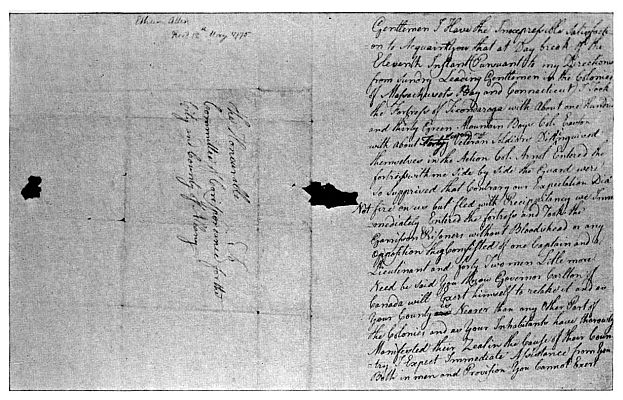 Ethan Allen
Recd 12th May 1775
To
The Honourable
Committee of Correspondence for the
City and County of Albany
Gentlemen I Have the Inexpressible Satisfacti
on to Acquaint you that at Day break of the
Eleventh Instant Pursuant to my Directions
from Sundry Leading Gentlemen in the Colonies
of Massachusets Bay and Connecticut I Took
the Fortress of Ticonderoga with About one Hundred
and thirty Green Mountain Boys Col. Easton
with about Veteran Soldiers Distinguised
themselves in the Action Col. Arnel Entered the
fortress with me Side by Side the Guard were
So Supprised that Contrary our Expectation Did
Not fire on us but fled with Precipitancy we Imm
mediately Entered the fortress and Took the
Garrison Prisoners without Bloodshead or any
Opposition they Consisted of one Captain and a
Lieutenant and forty Two men Little more
Need be said You Know Governor Carlton of
Canada will Exert himself to retake it and as
Your County is Nearer than any Other Part of
the Colonies and as your Inhabitants have thorowly
Manifested their Zeal in the Cause of their Coun
try I Expect Immediate Assistance from You
Both in men and Provision You Cannot Exert